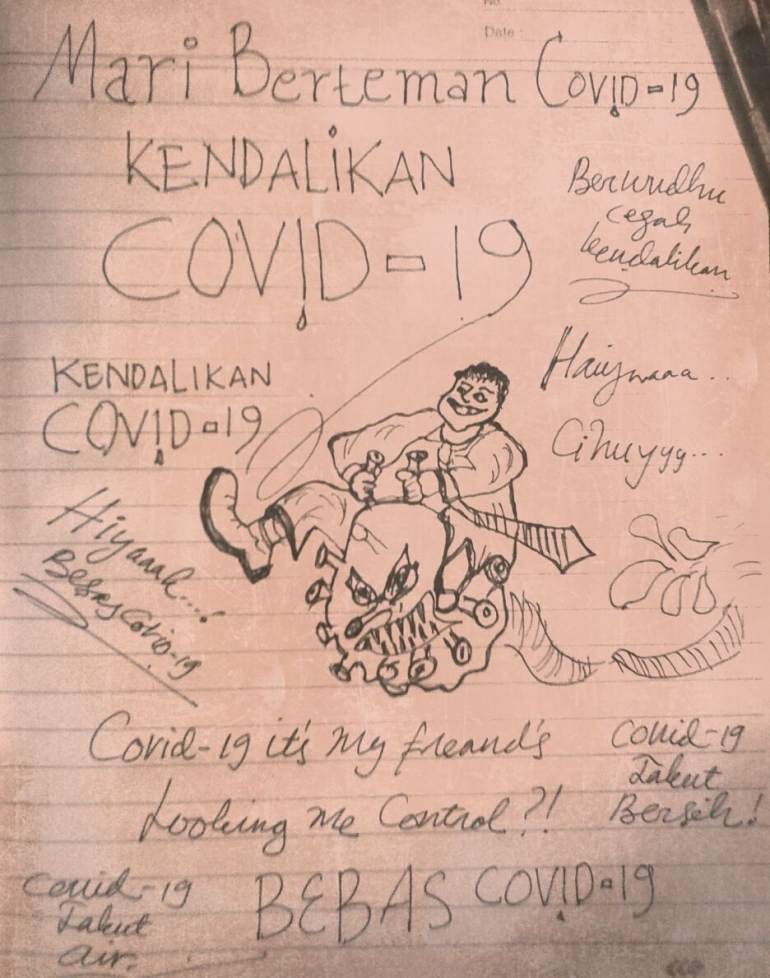 No
Date :
Mari Berteman COVID-19
KENDALiKAN
COVID-19
Berwudhu
cegah
kendalikan
KENDALIKAN
COVID-19
Haiywaaa..
Cihuyyy...
Hiyaaah...!
Bebas Covid-19
Covid-19 it's My freand's
Looking Me Control?!
Covid-19
Takut
Bersih!
Covid-19
Takut
air.
BEBAS COVID-19